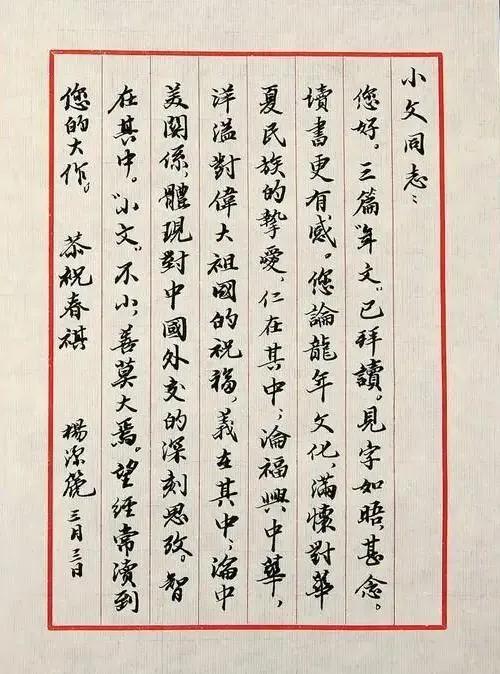 小文同志：
您好。三篇“年文”已拜讀。見字如晤，甚念。
讀書更有感。您論龍年文化，滿懷對華
夏民族的摯愛，仁在其中；論福興中華，
洋溢對偉大祖國的祝福，義在其中；論中
美關係，體現對中國外交的深刻思考。智
在其中。“小文”不小，善莫大焉。望經常讀到
您的大作。 恭祝春祺 楊潔篪 三月三日